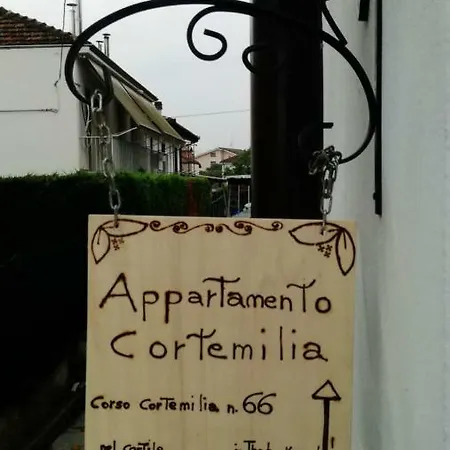 Appartamento
Cortemilia
Corso Cortemilia n. 66
nel cortile